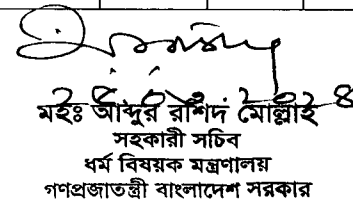 মহঃ আব্দুর রাশিদ মোল্লাহ
সহকারী সচিব
ধর্ম বিষয়ক মন্ত্রণালয়
গণপ্রজাতন্ত্রী বাংলাদেশ সরকার